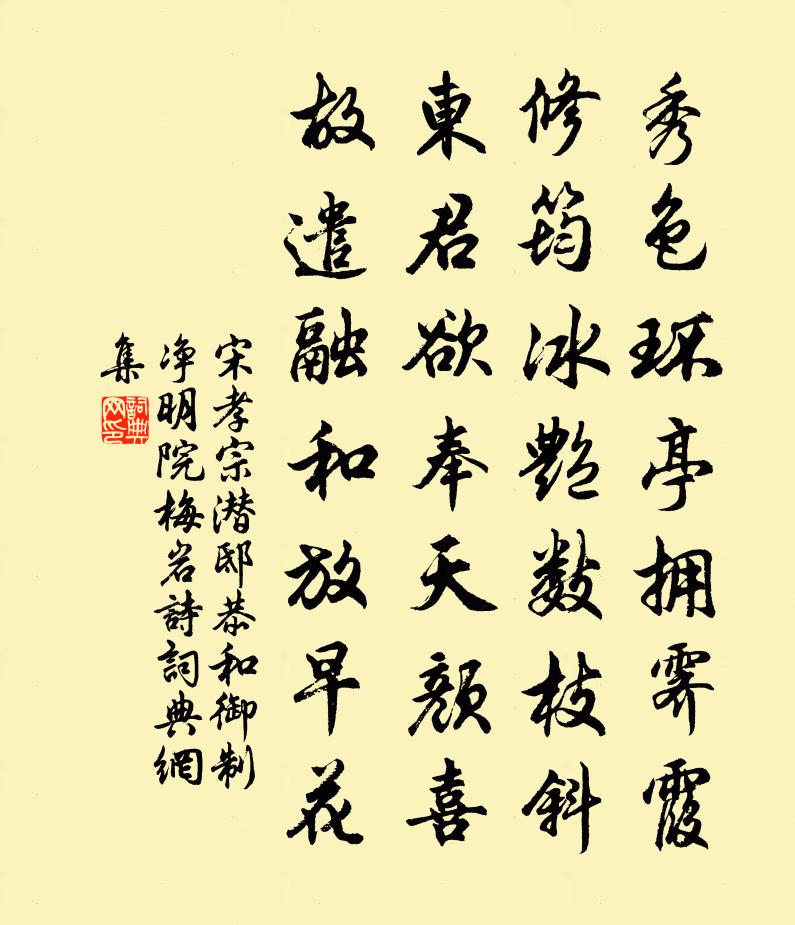 秀色环亭拥霁霞
修筠冰艳数枝斜
東君欲奉天颜喜
故遣融和放早花
宋孝宗潜邸恭和御制
净明院梅岩詩詞典網
集
詞典
网印